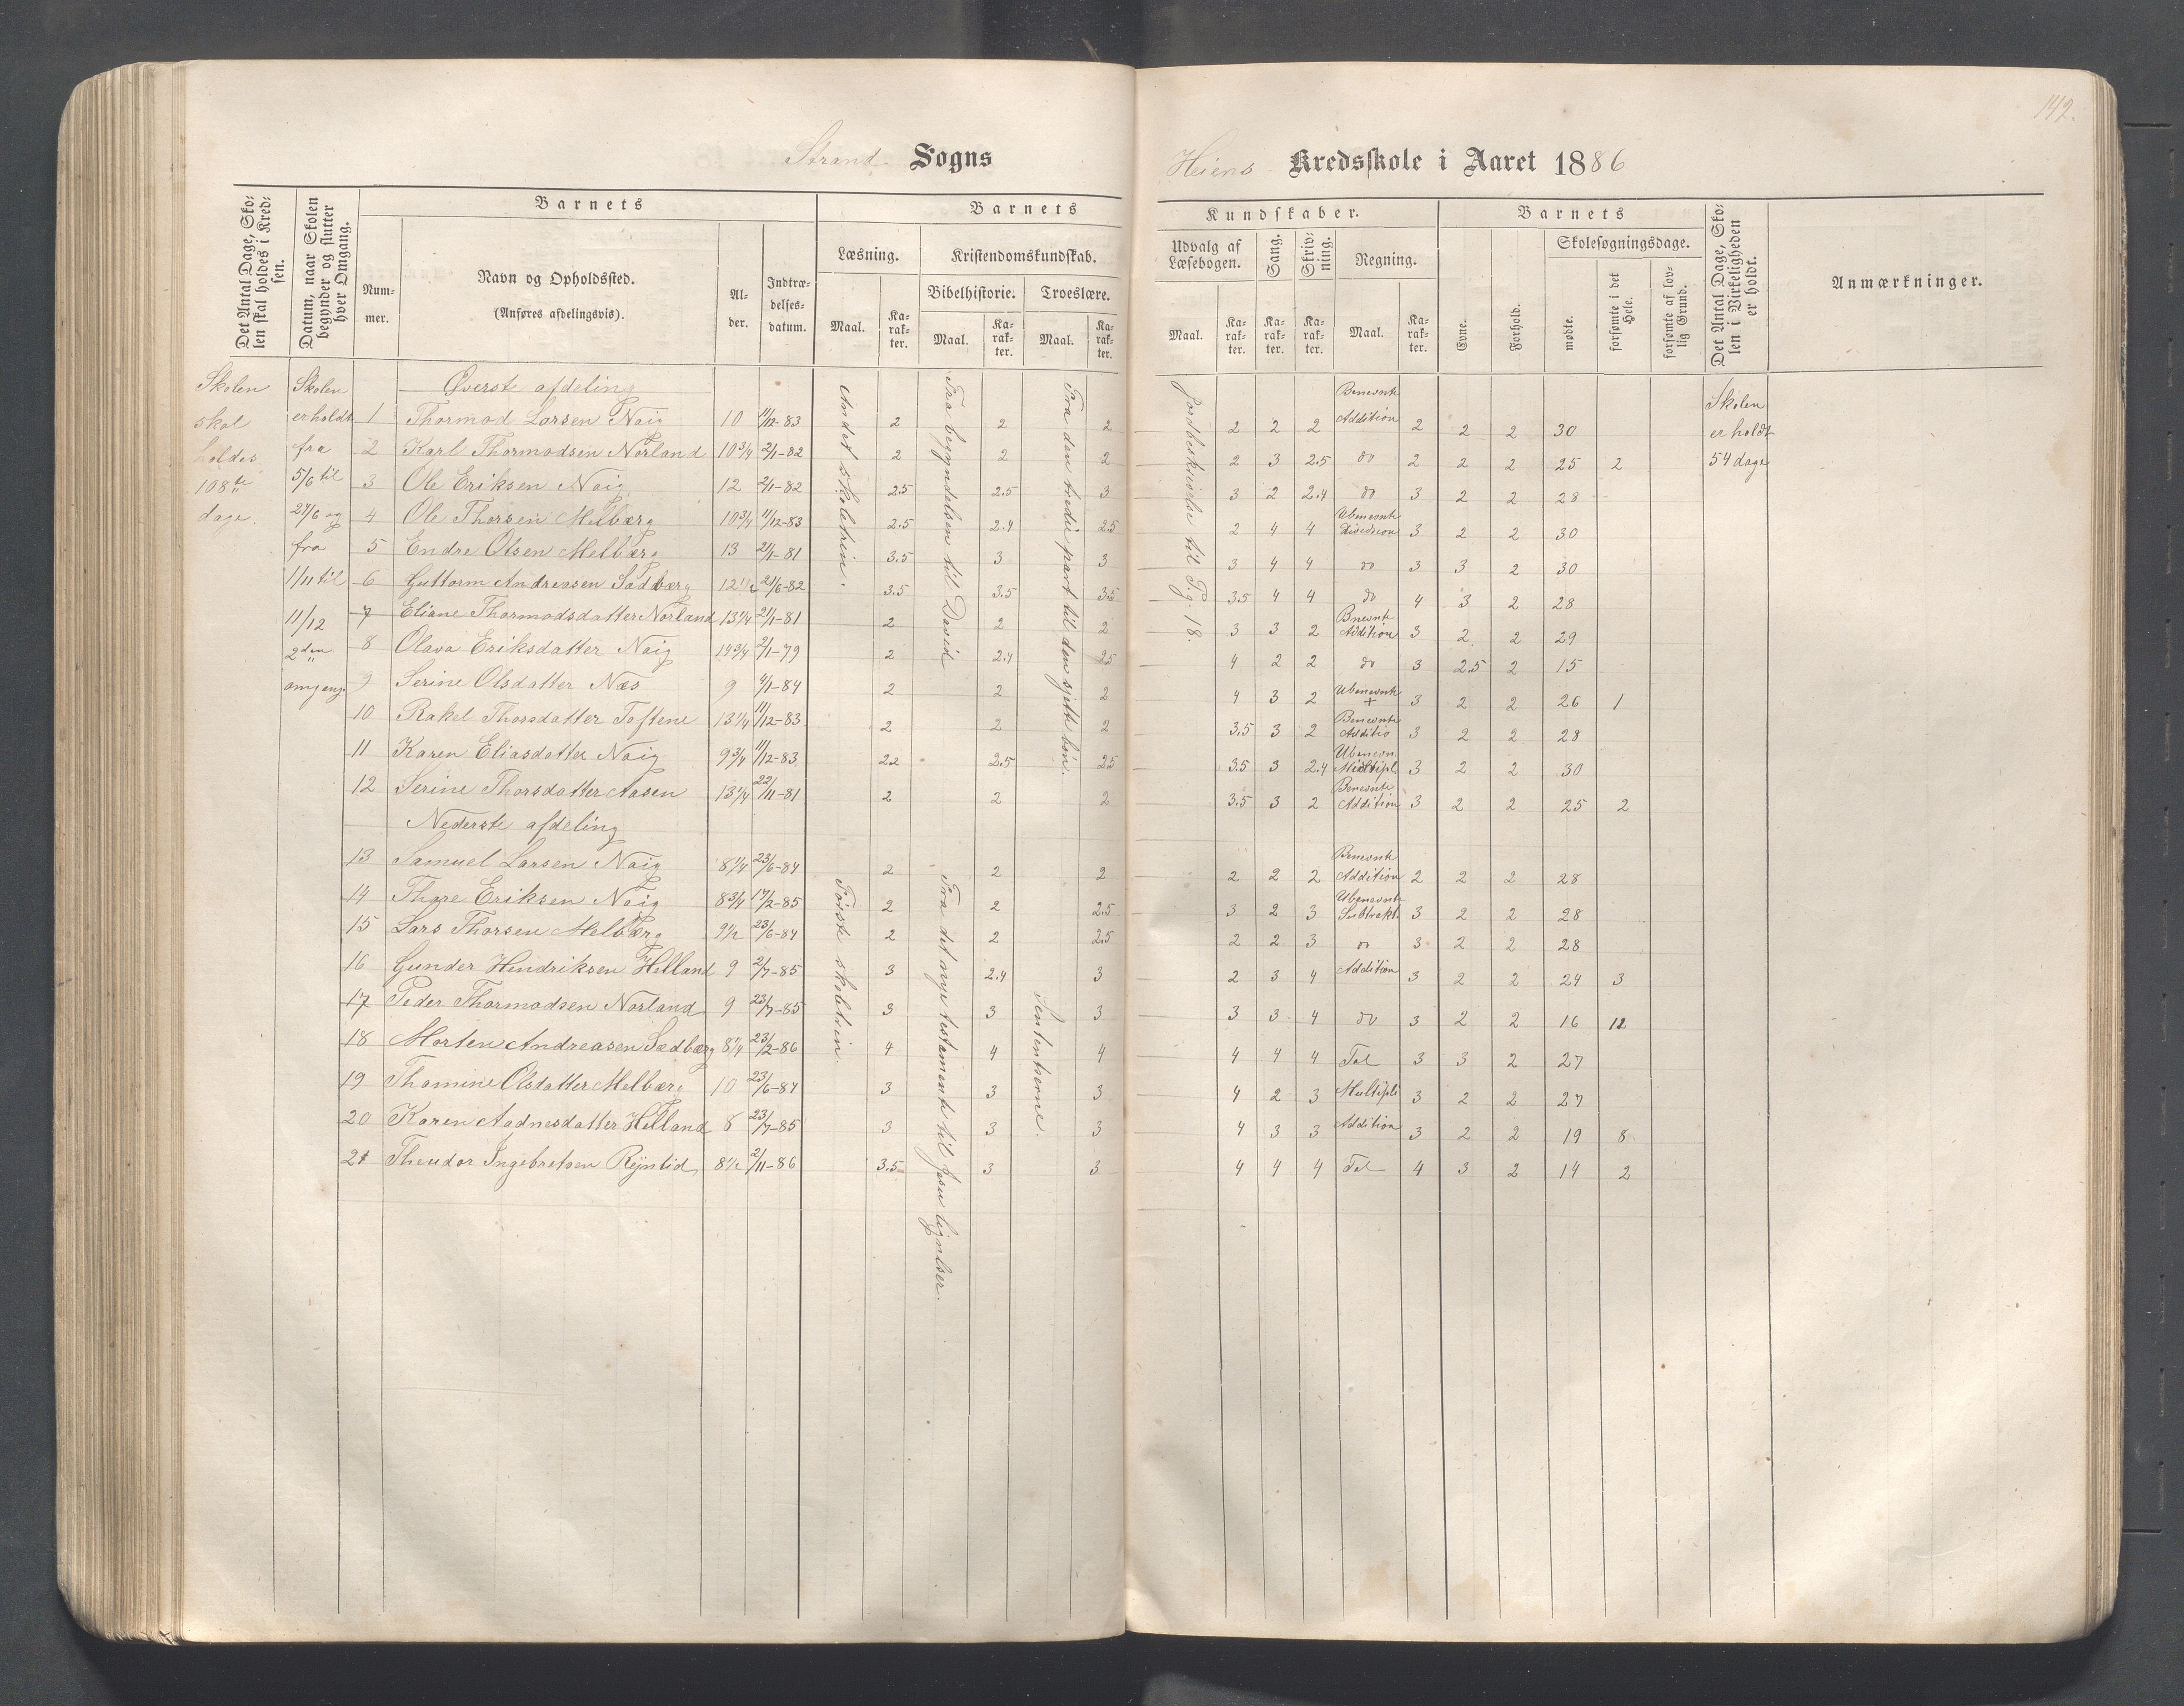 142.
Strand Sogns
Heiens Kredsskole i Aaret 1886
Det Antal Dage, Skolen skal holdes i Kredsen.
Datum, naar Skolen begynder og slutter hver Omgang.
Barnets
Nummer.
Navn og Opholdssted.
(Anføres afdelingsvis).
Alder.
Indtrædelsesdatum.
Barnets
Læsning.
Kristendomskundskab.
Bibelhistorie.
Troeslære.
Maal.
Karakter.
Maal.
Karakter.
Maal.
Karakter.
Kundskaber.
Udvalg af Læsebogen.
Sang.
Skrivning.
Regning.
Maal.
Karakter.
Karakter.
Karakter.
Maal.
Karakter.
Barnets
Evne.
Forhold.
Skolesøgningsdage.
mødte.
forsømte i det Hele.
forsømte af lovlig Grund.
Det Antal Dage, Skolen i Virkeligheden er holdt.
Anmærkninger.
Skolen skal holdes 108 te dage.
Skolen er holdt fra 5/6 til 27/6 og fra 1/11 til 11/12 2den omgang.
Andet skoletrin.
Fra begyndelsen til David
Fra den tredie part til den sjette bøn.
Jordbeskrivelse til Pg. 18.
Skolen er holdt 54 dage
Øverste afdeling
1 Thormod Larsen Naig 10 11/12-83 2 2 2 2 2 2 Benevnte Addition 2 2 2 30
2 Karl Thormodsen Norland 10 3/4 2/1-82 2 2 2 2 3 2.5 do 2 2 2 25 2
3 Ole Eriksen Naig 12 2/1-82 2.5 2.5 3 3 2 2.4 do 3 2 2 28
4 Ole Thorsen Melbærg 10 3/4 11/12-83 2.5 2.4 2.5 2 4 4 Ubenevnte Division 3 2 2 30
5 Endre Olsen Melbærg 13 2/1-81 3.5 3 3 3 4 4 do 3 3 2 30
6 Guttorm Andreasen Sadbærg 12 1/2 21/6-82 3.5 3.5 3.5 3.5 4 4 do 4 3 2 28
7 Eliane Thormodsdatter Norland 13 1/4 21/1-81 2 2 2 3 3 2 Bnevnte Addition 3 2 2 29
8 Olava Eriksdatter Naig 14 3/4 2/1-79 2 2.4 2.5 4 2 2 do 3 2.5 2 15
9 Serine Olsdatter Næs 9 4/1-84 2 2 2 4 3 2 Ubenevnte + 3 2 2 26 1
10 Rakel Thorsdatter Toftene 13 1/4 11/12-83 2 2 2 3.5 3 2 Benevnte Additio 3 2 2 28
11 Karen Eliasdatter Naig 9 3/4 11/12-83 2.2 2.5 2.5 3.5 3 2.4 Ubenevn Multipl 3 2 2 30
12 Serine Thorsdatter Aasen 13 1/4 22/11-81 2 2 2 3.5 3 2 Benevnte Addition 3 2 2 25 2
Nederste afdeling
Første skoletrin
Fra det nye testamente til Jesu lignelser.
Sententserne.
13 Samuel Larsen Naig 8 1/4 23/6-84 2 2 2 2 2 2 Benevnte Addition 2 2 2 28
14 Thore Eriksen Naig 8 3/4 17/2-85 2 2 2.5 3 2 3 Ubenevnte Subtrakt. 3 2 2 28
15 Lars Thorsen Melbærg 9 1/2 23/6-84 2 2 2.5 2 2 3 do 3 2 2 28
16 Gunder Hendriksen Helland 9 2/7-85 3 2.4 3 2 3 4 Addition 3 2 2 24 3
17 Peder Thormodsen Norland 9 23/7-85 3 3 3 3 3 4 do 3 2 2 16 12
18 Morten Andreasen Sædbærg 8 1/4 23/2-86 4 4 4 4 4 4 Tal 3 3 2 27
19 Thomine Olsdatter Melbærg 10 23/6-84 3 3 3 4 2 3 Multipli 3 2 2 27
20 Karen Aadnesdatter Helland 8 23/7-85 3 3 3 4 3 3 Addition 3 2 2 19 8
21 Theudor Ingebretsen Røjnlid 8 1/2 2/11-86 3.5 3 3 4 4 4 Tal 4 3 2 14 2